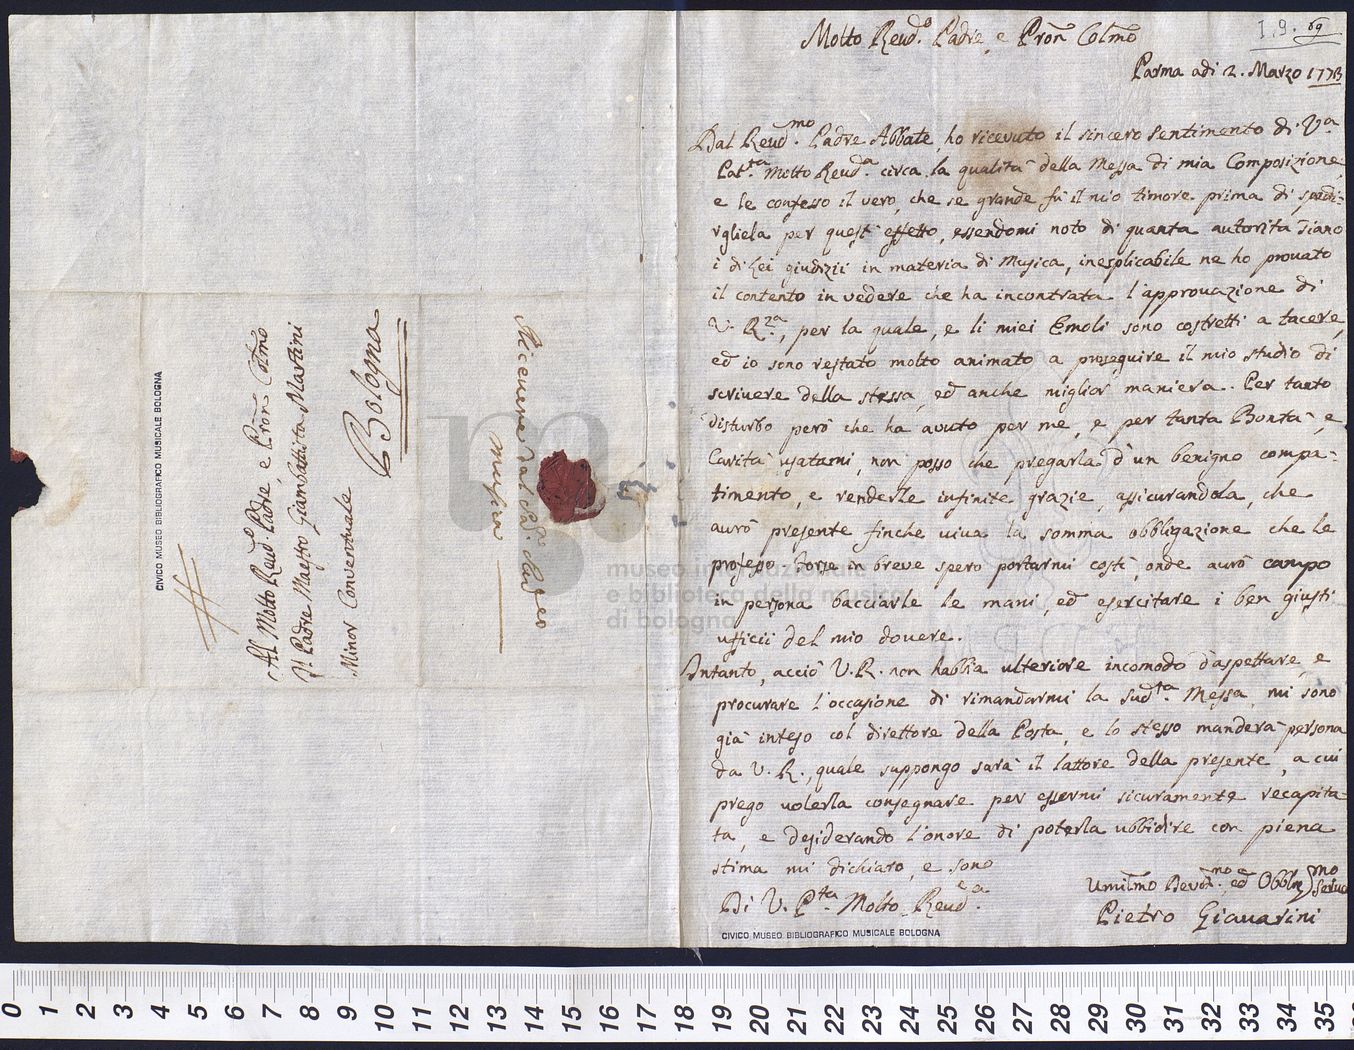 I.9. 69
Molto Reud.º Padre, e Pron̄ Colmo
Parma adi 2. Marzo 1773
Dal Reud.mo Padre Abbate, ho ricevuto il sincero sentimento di V.a
Pat.ta Molto Reud.a circa la qualità della Messa di mia Composizione,
e le confesso il vero, che se grande fù il mio timore prima di spedi-
rgliela per quest'effetto, essendomi noto di quanta autorità siano
i di Lei giudizii in materia di Musica, inesplicabile ne ho provato
il contento in vedere che ha incontrata l'approvazione di
V. R.za, per la quale, e li miei Emoli sono costretti a tacere,
ed io sono restato molto animato a proseguire il mio studio di
scrivere della stessa, ed anche miglior maniera. Per tanto
disturbo però che ha avuto per me, e per tanta Bontà, e
Carità usatami, non posso che pregarla d'un benigno compa-
timento, e renderle infinite grazie, assicurandola, che
aurò presente finche viva la somma obbligazione che le
professo. Forse in breve spero portarmi costì, onde aurò campo
in persona bacciarle le mani, ed esercitare i ben giusti
ufficii del mio dovere.
Intanto, acciò V. R. non habbia ulteriore incomodo d'aspettare, e
procurare l'occasione di rimandarmi la sud.ta Messa, mi sono
già inteso col direttore della Posta, e lo stesso manderà persona
da V. R., quale suppongo sarà il lattore della presente, a cui
prego volerla consegnare per essermi sicuramente recapita-
ta, e desiderando l'onore di poterla ubbidire con piena
stima mi dichiaro, e sono
Di V. P.tà Molto Reud.a
Umilmo Devot.mo ed Obblmo Seruo
Pietro Giavarini
CIVICO MUSEO BIBLIOGRAFICO MUSICALE BOLOGNA
Al Molto Reud.º Padre, e Pron̄ Colmo
Il Padre Maestro Giambattista Martini
Minor Conventuale
Bologna
CIVICO MUSEO BIBLIOGRAFICO MUSICALE BOLOGNA
musica
museo internazionale
e biblioteca della musica
di bologna
0 1 2 3 4 5 6 7 8 9 10 11 12 13 14 15 16 17 18 19 20 21 22 23 24 25 26 27 28 29 30 31 32 33 34 35